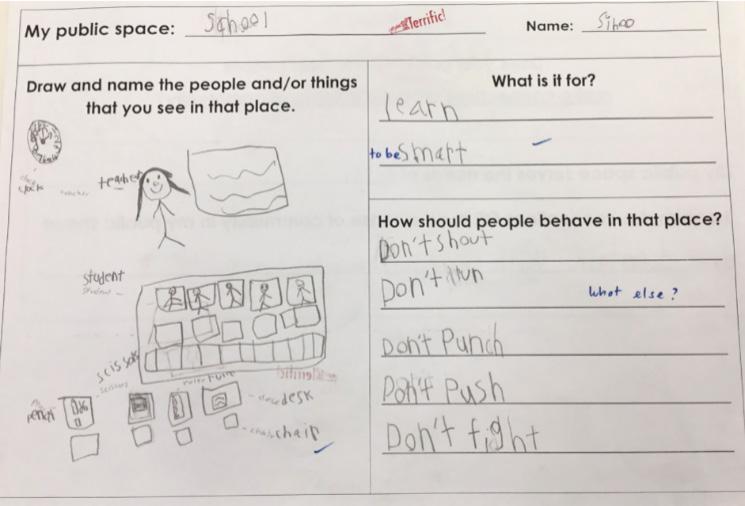 My public space: School Terrific! Name: Sihoo
Draw and name the people and/or things
that you see in that place.
clock
teacher
student
scissors
pencil
desk
chair
What is it for?
learn
to be smart
How should people behave in that place?
Don't shout
Don't run
What else?
Don't Punch
Don't Push
Don't fight